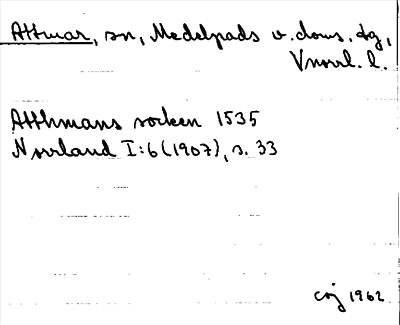 Attmar, sn, Medelpads v. doms. tg,
Vnorrl. l.
Atthmans socken 1535
Norrland I:6 (1907), s. 33
CÖJ 1962